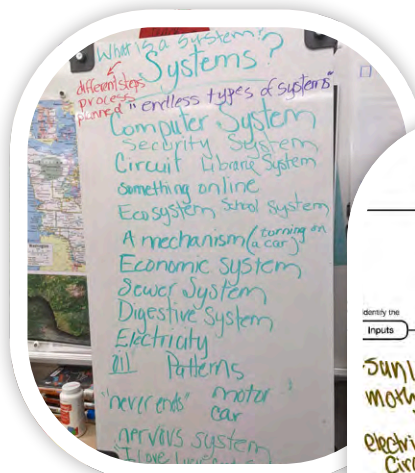 What is a system?
Systems?
different steps
process
planned
"endless types of systems"
Computer System
Security System
Circuit Library System
something online
Ecosystem School System
A mechanism (turning on a car)
Economic System
Sewer System
Digestive System
Electricity
Patterns
"never ends" motor
car
nervous system
"I love
identify the
Inputs
electri